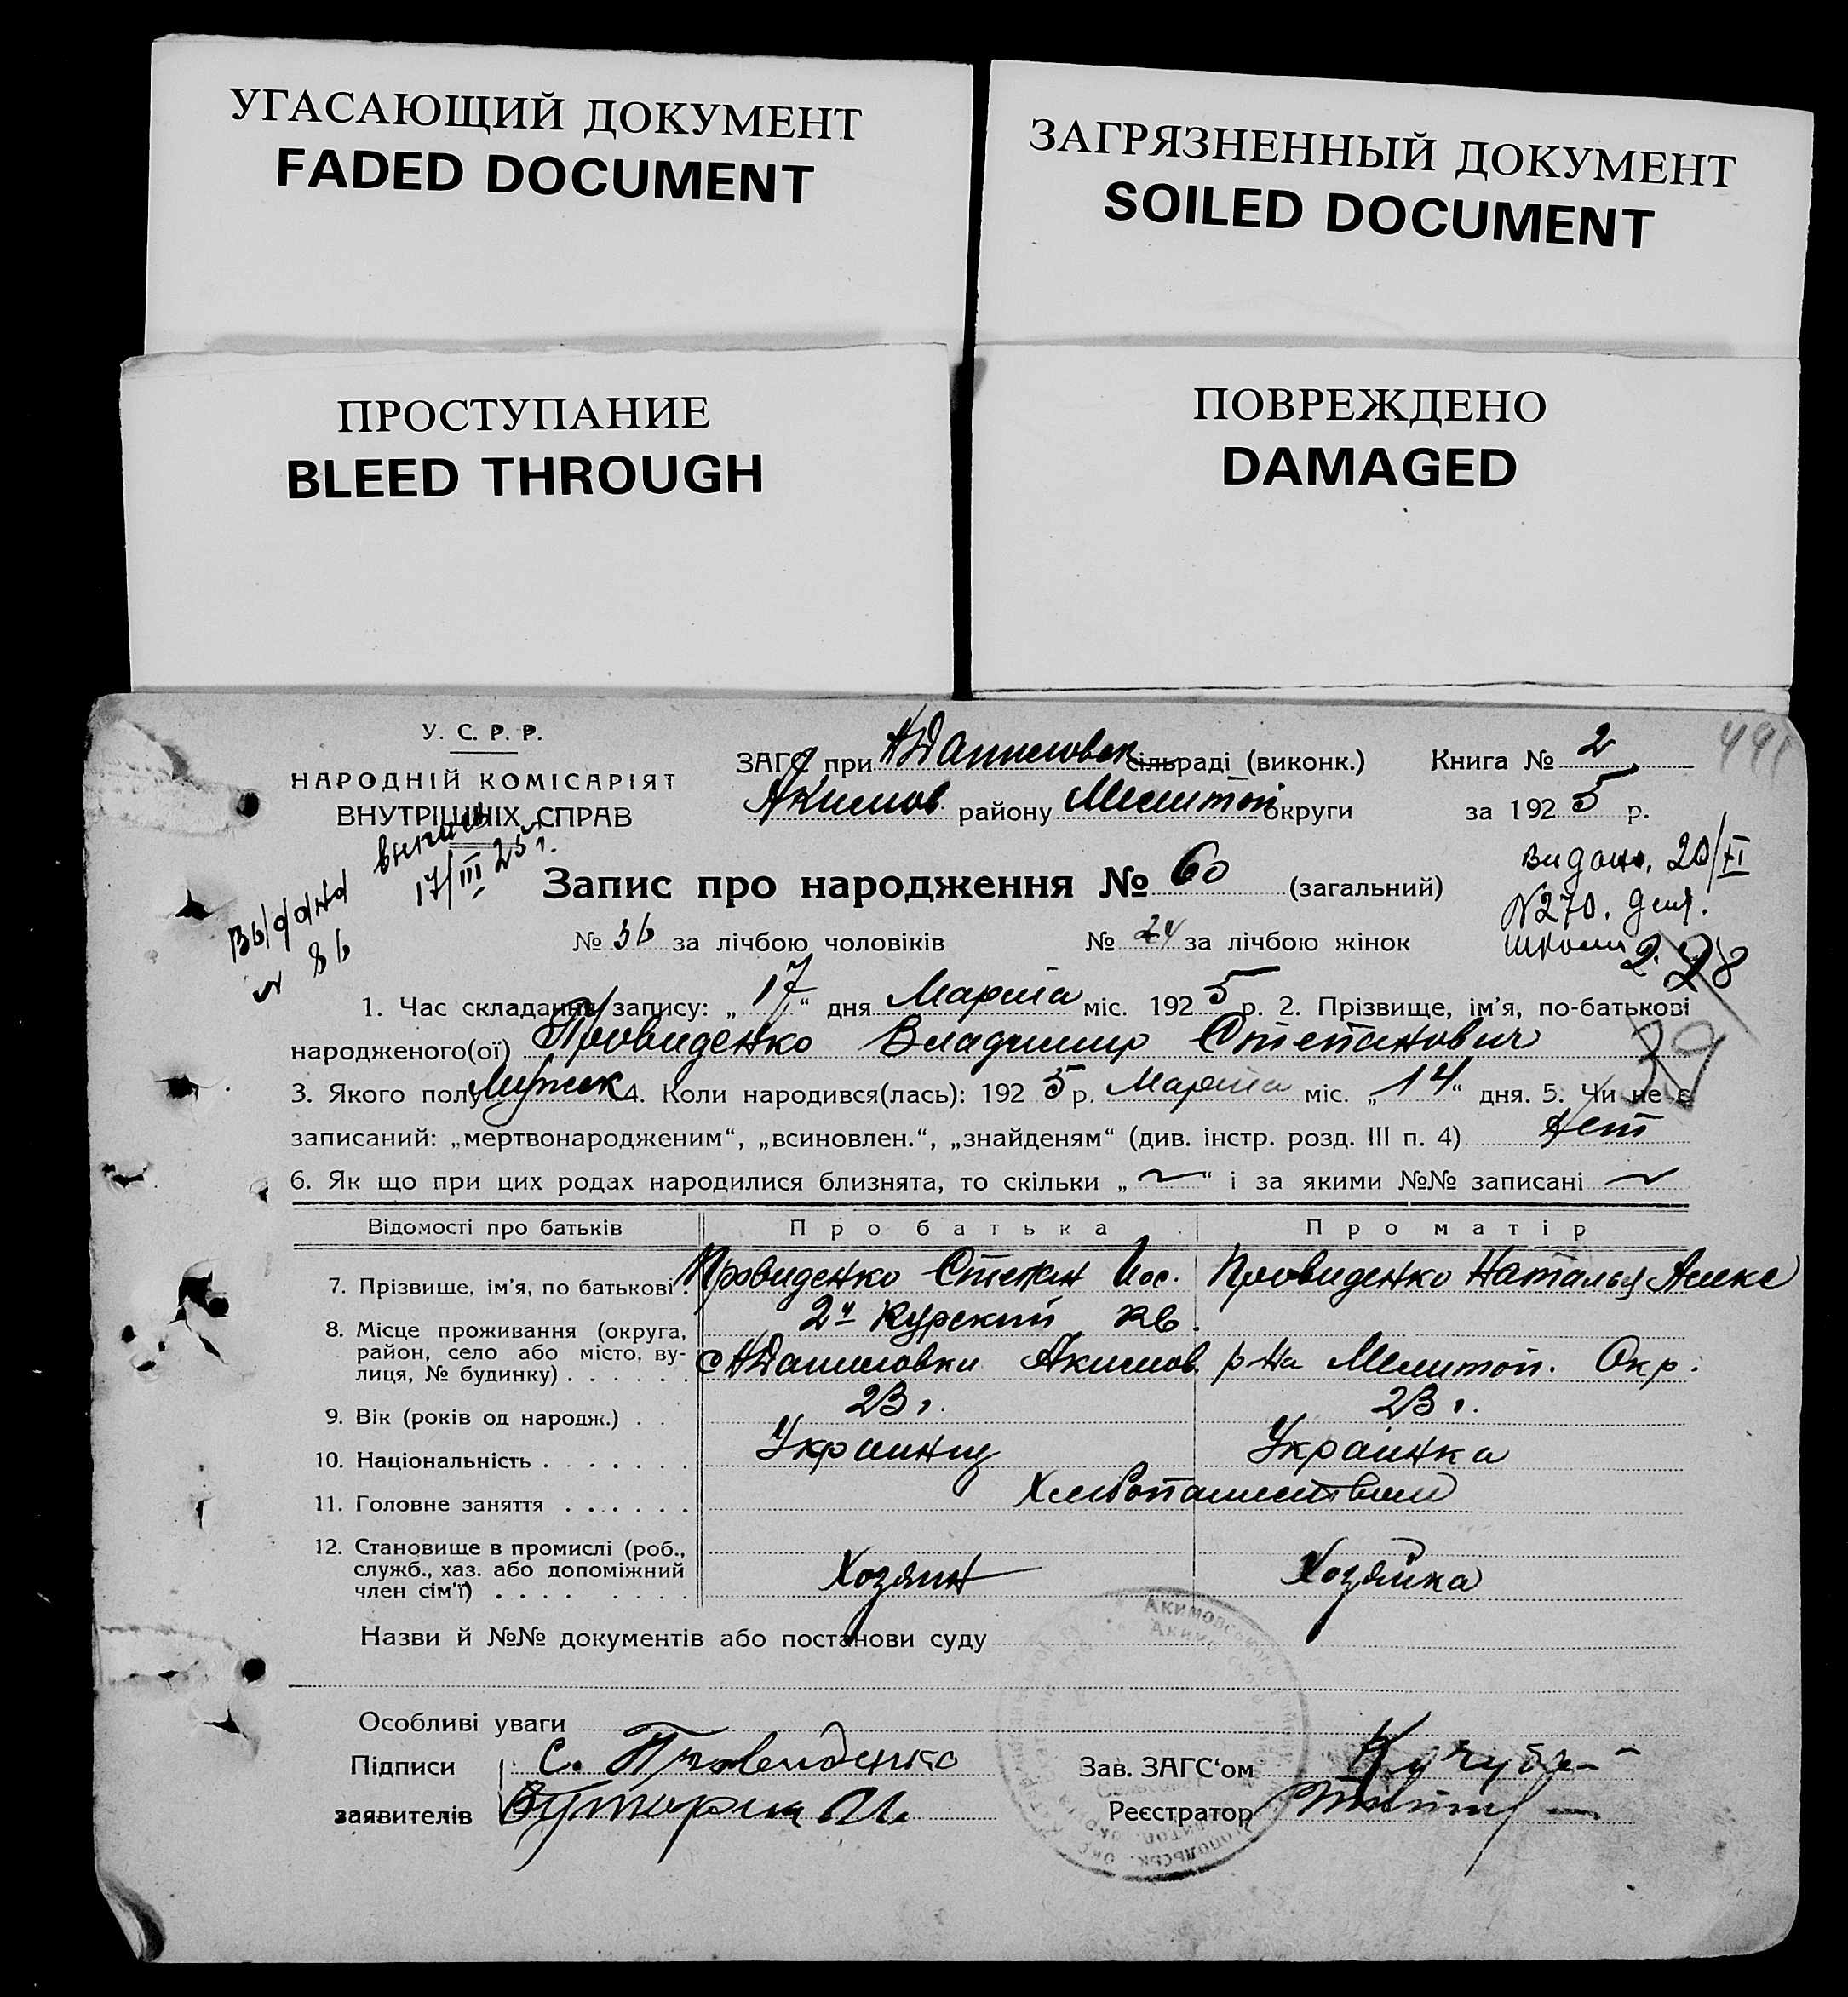 УГАСАЮЩИЙ ДОКУМЕНТ
FADED DOCUMENT
ЗАГРЯЗНЕННЫЙ ДОКУМЕНТ
SOILED DOCUMENT
ПРОСТУПАНИЕ
BLEED THROUGH
ПОВРЕЖДЕНО
DAMAGED
У. С. Р. Р.
НАРОДНІЙ КОМІСАРІЯТ
ВНУТРІШНІХ СПРАВ
ЗАГС при АДаниловск сільраді (виконк.)
Акимов. району Мелитоп округи
Книга № 2
за 1925 р.
491
Выдана
выпись
17/III 25 г.
№ 86
Запис про народження № 60 (загальний)
Видано. 20/XI
N270. для.
школи
№ 36 за лічбою чоловіків № 24 за лічбою жінок
28
1. Час складання запису: „17“ дня Марта міс. 1925 р. 2. Прізвище, ім'я, по-батькові
народженого(ої) Провиденко Владимир Степанович
39
3. Якого полу Мужск 4. Коли народився(лась): 1925 р. Марта міс. „14“ дня. 5. Чи не є
записаний: „мертвонародженим“, „всиновлен.“, „знайденям“ (див. інстр. розд. III п. 4) Нет
6. Як що при цих родах народилися близнята, то скільки „ ~ “ і за якими №№ записані ~
Відомості про батьків Про батька Про матір
7. Прізвище, ім'я, по батькові . Провиденко Степан Иос. Провиденко Наталья Алекс
8. Місце проживання (округа, район, село або місто, вулиця, № будинку) . . . . . . 2й Курский кв.
с АДаниловки Акимов. р-на Мелитоп. Окр.
9. Вік (років од народж.) . . 23 г. 23 г.
10. Національність . . . . . . . Украинец Украинка
11. Головне заняття . . . . . . Хлебопашеством
12. Становище в промислі (роб., служб., хаз. або допоміжний член сім'ї) . . . . Хозяин Хозяйка
Назви й №№ документів або постанови суду
Особливі уваги
Підписи заявителів
С. Провиденко
Зав. ЗАГС'ом Кучубей
Реєстратор